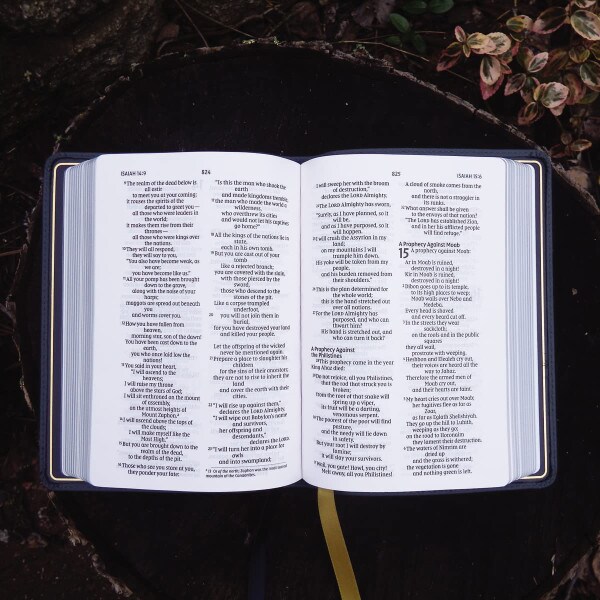 ISAIAH 14:9
824
9The realm of the dead below is
all astir
to meet you at your coming;
it rouses the spirits of the
departed to greet you —
all those who were leaders in
the world;
it makes them rise from their
thrones —
all those who were kings over
the nations.
10They will all respond,
they will say to you,
"You also have become weak, as
we are;
you have become like us."
11All your pomp has been brought
down to the grave,
along with the noise of your
harps;
maggots are spread out beneath
you
and worms cover you.
12How you have fallen from
heaven,
morning star, son of the dawn!
You have been cast down to the
earth,
you who once laid low the
nations!
13You said in your heart,
"I will ascend to the
heavens;
I will raise my throne
above the stars of God;
I will sit enthroned on the mount
of assembly,
on the utmost heights of
Mount Zaphon.
14I will ascend above the tops of
the clouds;
I will make myself like the
Most High."
15But you are brought down to the
realm of the dead,
to the depths of the pit.
16Those who see you stare at you,
they ponder your fate:
"Is this the man who shook the
earth
and made kingdoms tremble,
17the man who made the world a
wilderness,
who overthrew its cities
and would not let his captives
go home?"
18All the kings of the nations lie in
state,
each in his own tomb.
19But you are cast out of your
tomb
like a rejected branch;
you are covered with the slain,
with those pierced by the
sword,
those who descend to the
stones of the pit.
Like a corpse trampled
underfoot,
20 you will not join them in
burial,
for you have destroyed your land
and killed your people.
Let the offspring of the wicked
never be mentioned again.
21Prepare a place to slaughter his
children
for the sins of their ancestors;
they are not to rise to inherit the
land
and cover the earth with their
cities.
22"I will rise up against them,"
declares the LORD Almighty.
"I will wipe out Babylon's name
and survivors,
her offspring and
descendants,"
declares the LORD.
23"I will turn her into a place for
owls
and into swampland;
825
ISAIAH 15:6
I will sweep her with the broom
of destruction,"
declares the LORD Almighty.
24The LORD Almighty has sworn,
"Surely, as I have planned, so it
will be,
and as I have purposed, so it
will happen.
25I will crush the Assyrian in my
land;
on my mountains I will
trample him down.
His yoke will be taken from my
people,
and his burden removed from
their shoulders."
26This is the plan determined for
the whole world;
this is the hand stretched out
over all nations.
27For the LORD Almighty has
purposed, and who can
thwart him?
His hand is stretched out, and
who can turn it back?
A Prophecy Against
the Philistines
28This prophecy came in the year
King Ahaz died:
29Do not rejoice, all you Philistines,
that the rod that struck you is
broken;
from the root of that snake will
spring up a viper,
its fruit will be a darting,
venomous serpent.
30The poorest of the poor will find
pasture,
and the needy will lie down
in safety.
But your root I will destroy by
famine;
it will slay your survivors.
31Wail, you gate! Howl, you city!
Melt away, all you Philistines!
A cloud of smoke comes from the
north,
and there is not a straggler in
its ranks.
32What answer shall be given
to the envoys of that nation?
"The LORD has established Zion,
and in her his afflicted people
will find refuge."
A Prophecy Against Moab
15 A prophecy against Moab:
Ar in Moab is ruined,
destroyed in a night!
Kir in Moab is ruined,
destroyed in a night!
2Dibon goes up to its temple,
to its high places to weep;
Moab wails over Nebo and
Medeba.
Every head is shaved
and every beard cut off.
3In the streets they wear
sackcloth;
on the roofs and in the public
squares
they all wail,
prostrate with weeping.
4Heshbon and Elealeh cry out,
their voices are heard all the
way to Jahaz.
Therefore the armed men of
Moab cry out,
and their hearts are faint.
5My heart cries out over Moab;
her fugitives flee as far as
Zoar,
as far as Eglath Shelishiyah.
They go up the hill to Luhith,
weeping as they go;
on the road to Horonaim
they lament their destruction.
6The waters of Nimrim are
dried up
and the grass is withered;
the vegetation is gone
and nothing green is left.